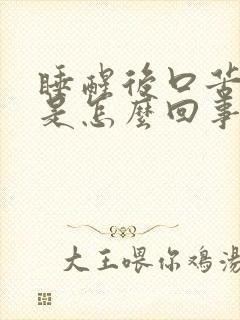 睡醒後口苦
是怎麼回事
大王喂你鸡汤